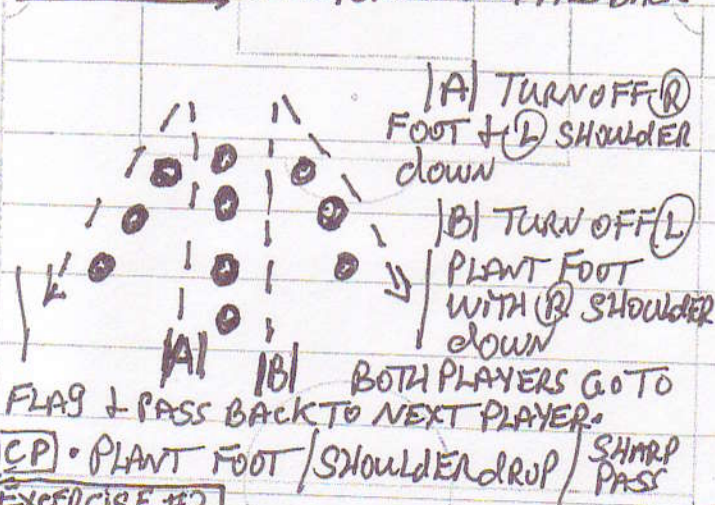 |A| TURN OFF Ⓡ
FOOT + Ⓛ SHOULDER
down
|B| TURN OFF Ⓛ
PLANT FOOT
WITH Ⓡ SHOULDER
down
|A| |B| BOTH PLAYERS GO TO
FLAG + PASS BACK TO NEXT PLAYER.
CP • PLANT FOOT / SHOULDER dROP / SHARP
PASS
EXERCISE #2